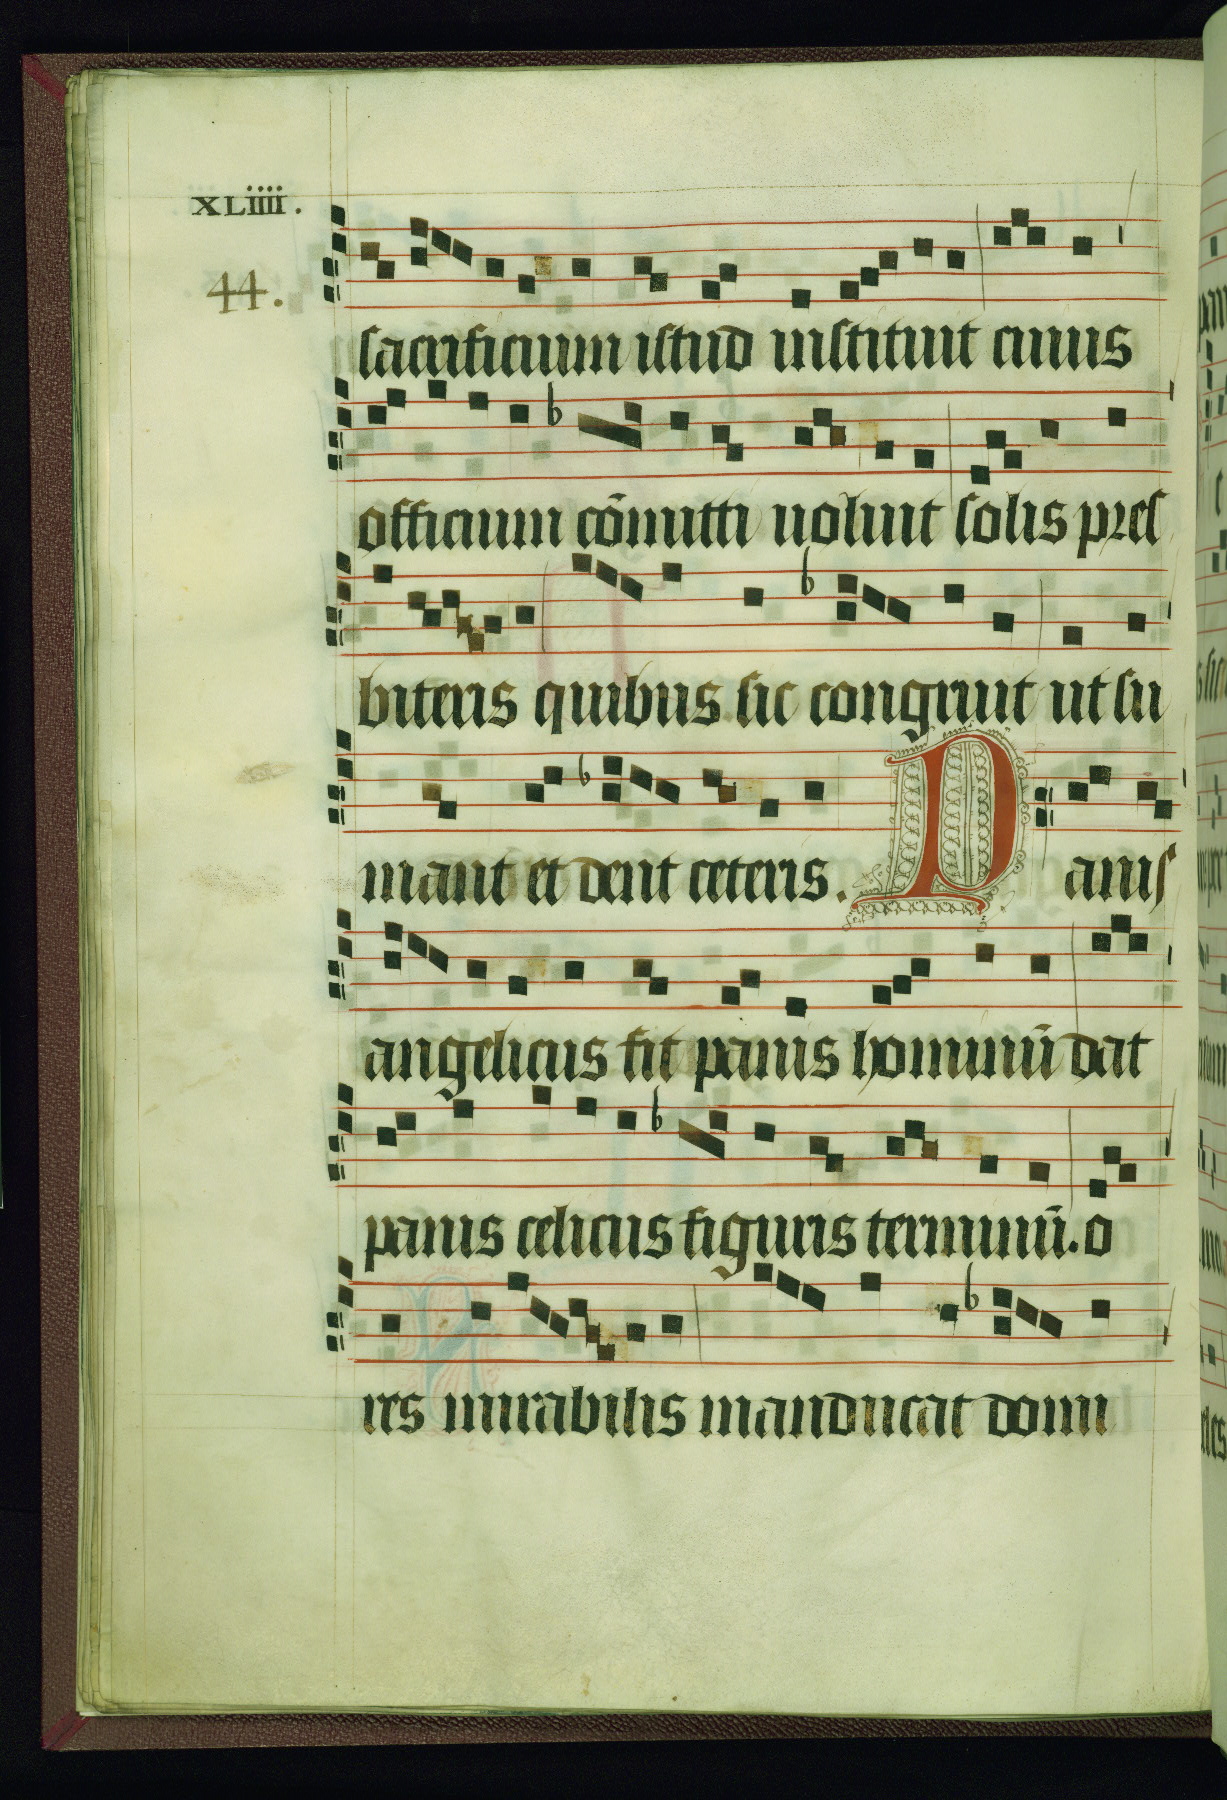 XLiiii.
44.
sacrificium istud instituit cuius
officium cōmitti uoluit solis pres
biteris quibus sic congruit ut su
mant et dent ceteris. Panis
angelicus fit panis hominū dat
panis celicus figuris terminū. o
res mirabilis manducat domi